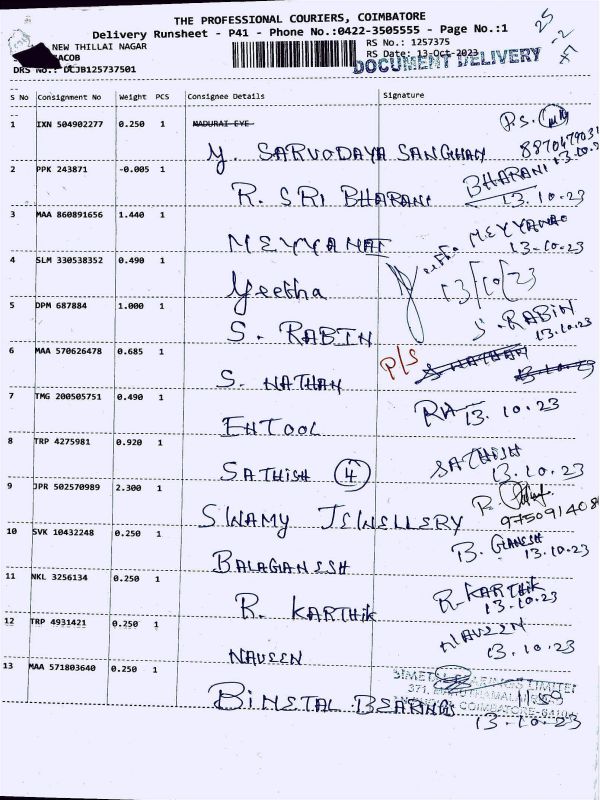 THE PROFESSIONAL COURIERS, COIMBATORE
Delivery Runsheet - P41 - Phone No.:0422-3505555 - Page No.:1
NEW THILLAI NAGAR
RS No.: 1257375
RS Date: 13-Oct-2023
DOCUMENT DELIVERY
DRS No.: DCJB125737501
S No Consignment No Weight PCS Consignee Details Signature
1 IXN 504902277 0.250 1 MADURAI EYE P.S.
Y. SARVODAYA SANGHAM
2 PPK 243871 -0.005 1
R. SRI BHARANI BHARANI 13.10.23
3 MAA 860891656 1.440 1
MEYYANAI 13-10-23
4 SLM 330538352 0.490 1
Geetha 13/10/23
5 DPM 687884 1.000 1
S. RABIN S. RABIN 13.10.23
6 MAA 570626478 0.685 1 P/S
S. NATHAN
7 TMG 200505751 0.490 1
EHTOOL 13.10.23
8 TRP 4275981 0.920 1
SATHISH 4 SATHISH 13.10.23
9 JPR 502570989 2.300 1
SWAMY JEWELLERY R.
10 SVK 10432248 0.250 1
BALAGANESH B. GANESH 13.10.23
11 NKL 3256134 0.250 1
R. KARTHIK R-KARTHIK 13.10.23
12 TRP 4931421 0.250 1
NAVEEN NAVEEN 13.10.23
13 MAA 571803640 0.250 1
BIMETAL BEARINGS LIMITED
BIMETAL BEARINGS 13.10.23